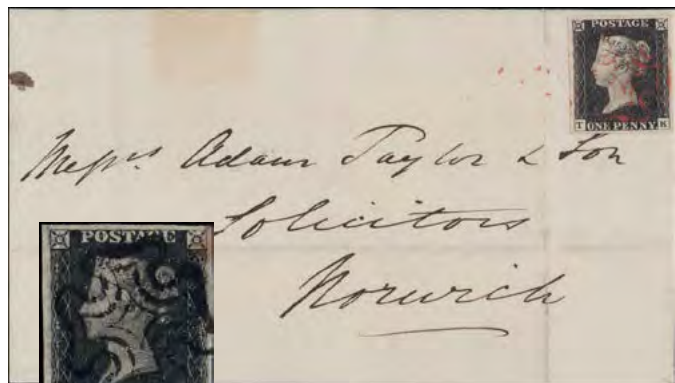 POSTAGE
T ONE PENNY K
Messrs Adam Taylor & Son
Solicitors
Norwich
POSTAGE